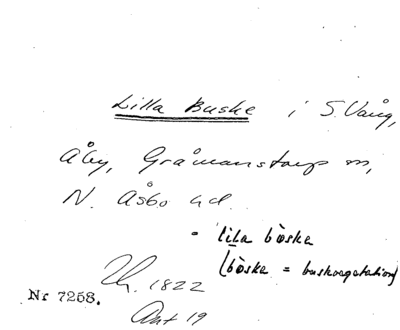 Lilla Buske i S. Vång,
Åby, Gråmanstorps sn,
N. Åsbo hd.
lila bòske
(bòske = buskvegetation)
1822
Nr 7258.
Akt 19